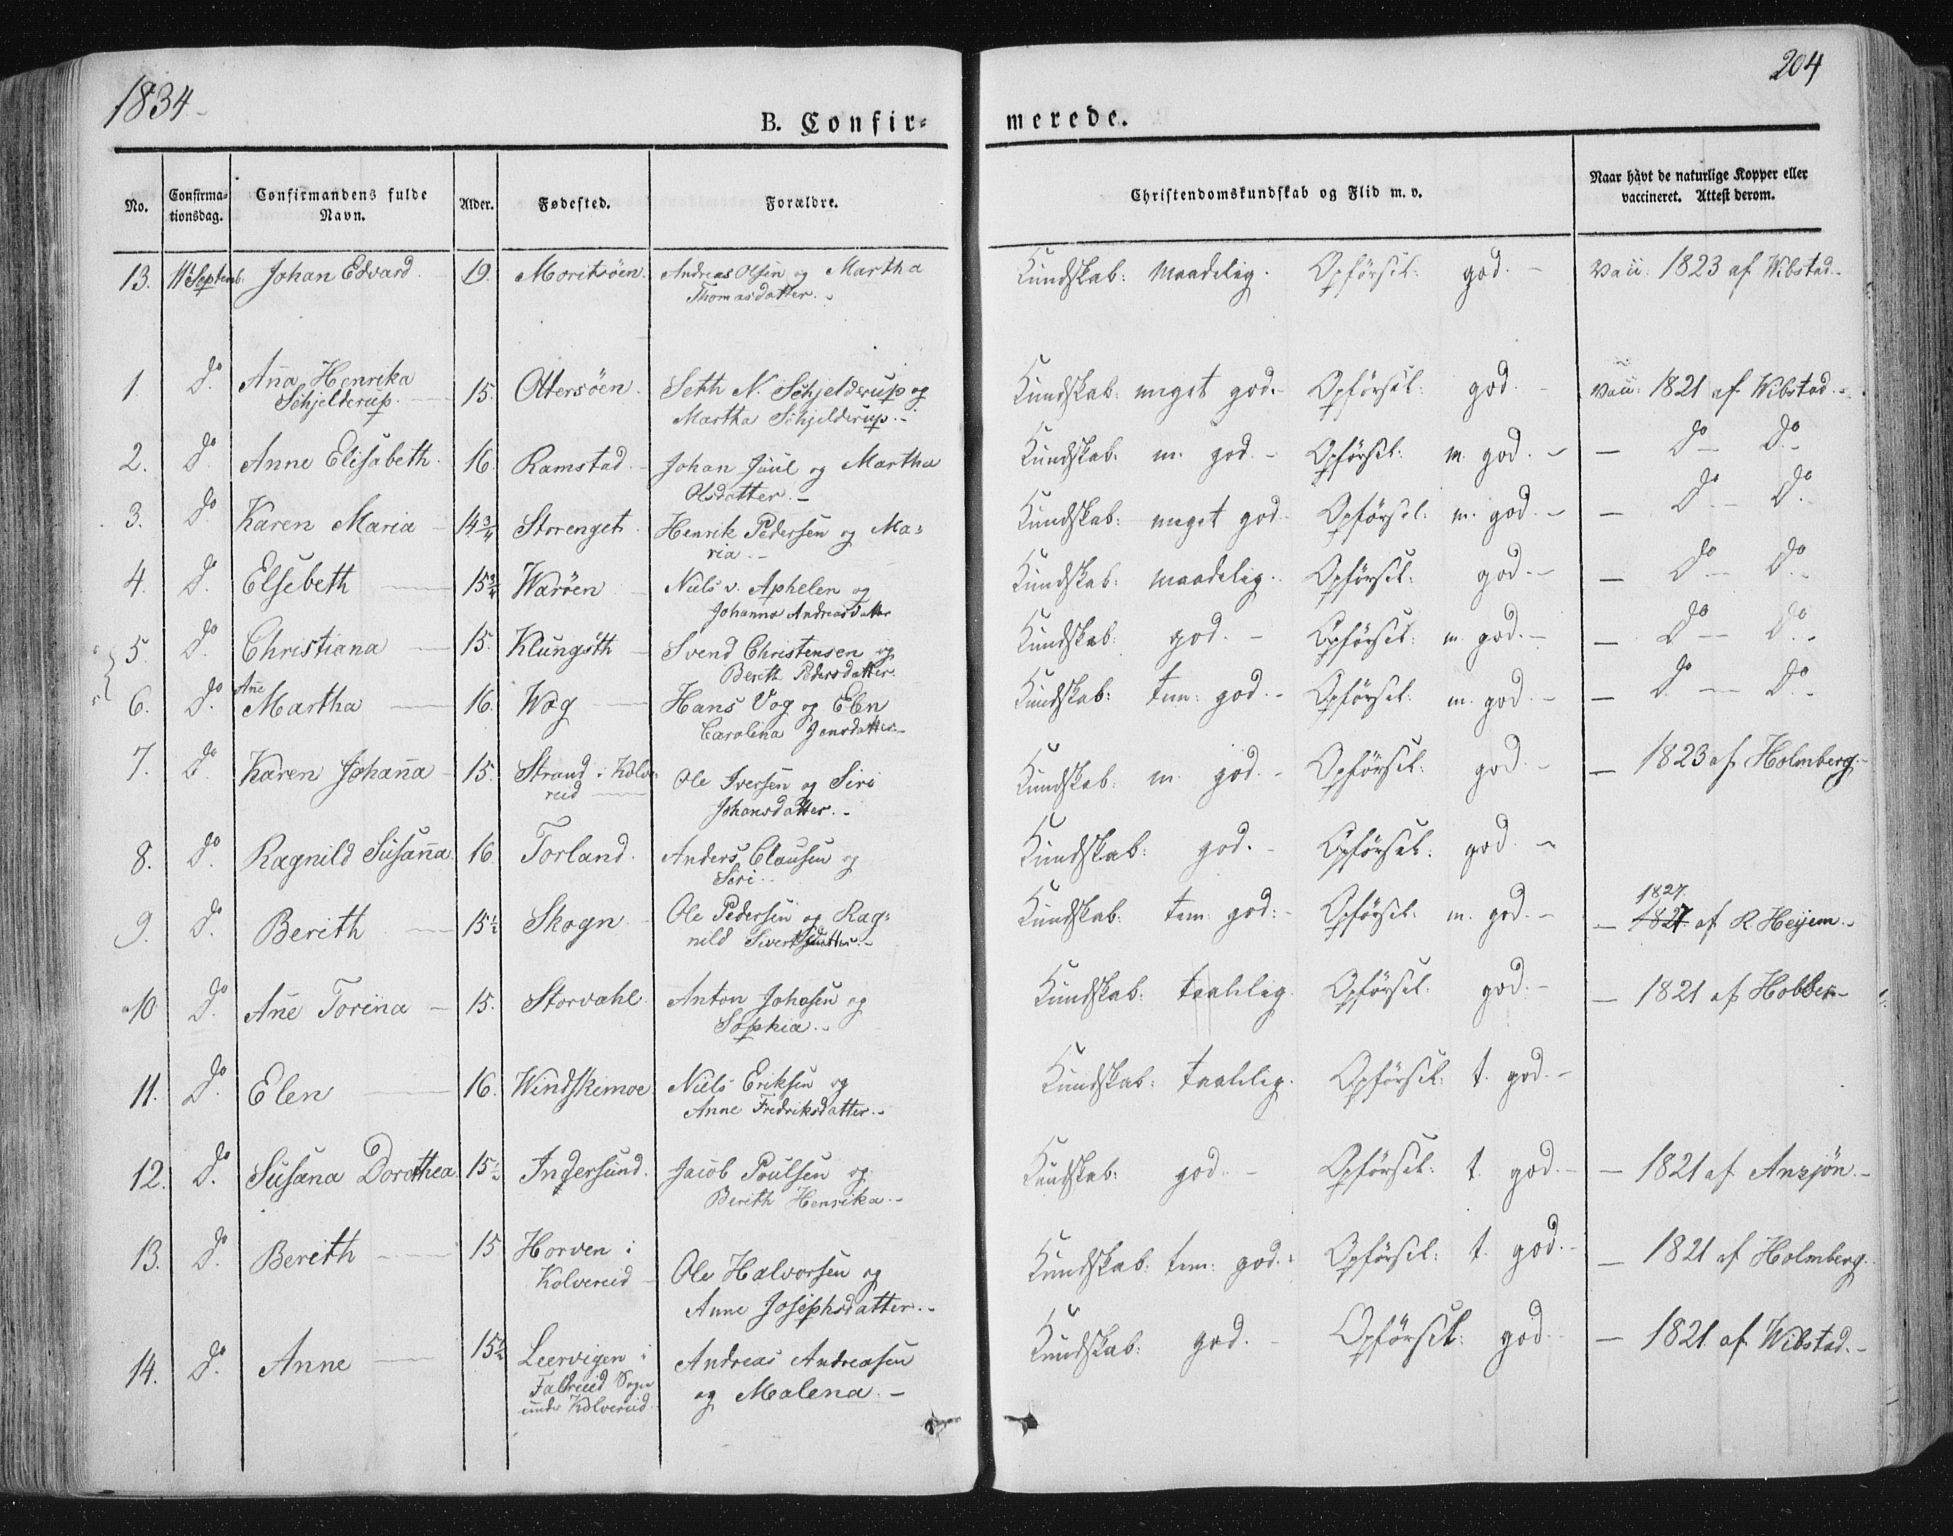 1834
204
B. Confir- merede.
No. Confirma- tionsdag. Confirmandens fulde Navn. Alder. Fødested. Forældre. Christendomskundskab og Flid m. v. Naar havt de naturlige Kopper eller vaccineret. Attest derom.
13. 11 Septemb. Johan Edvard 19. Moritsöen. Andreas Olsen og Martha Kundskab: maadelig. Opförsel: god. – Vacc: 1823 af Wibstad –
Thomasdatter. –
1. Do Aña Henrika 15. Ottersöen. Seth N. Schjelderup og Kundskab: meget god. Opförsel: god. – Vacc: 1821 af Wibstad. –
Schjelderup. Martha Schjelderup. –
2. Do Anne Elisabeth. 16. Ramstad. Johan Juul og Martha Kundskab: m. god. – Opförsel: m. god. – – Do – Do –
Olsdatter. –
3. Do Karen Maria 14 3/4 Storenget. Henrik Pedersen og Ma= Kundskab: meget god. Opförsel: m. god. – – Do – Do –
ria. –
4. Do Elsebeth 15 3/4 Waröen Niels v. Aphelen og Kundskab: maadelig. Opförsel: god. – – Do – Do –
Johanna Andreasdatter
5. Do Christiana 15. Klungsth Svend Christensen og Kundskab: god. – Opförsel: m. god. – – Do – Do –
Berith Pedersdatter.
6. Do Añe Martha 16. Wog Hans Vog og Elen Kundskab: tem: god. – Opförsel: m. god. – – Do – Do –
Carolina Jensdatter –
7. Do Karen Johaña 15. Strand i Kolve Ole Iversen og Siri Kundskab: m. god. – Opförsel: god. – – 1823 af Holmberg. –
reid Johansdatter. –
8. Do Ragnild Susaña 16. Torland. Anders Clausen og Kundskab: god. – Opförsel: god. –
Siri. –
9. Do Berith 15 1/2 Skogn Ole Pedersen og Rag= Kundskab: tem: god: – Opförsel: m. god. – 1827.
nild Sivertsdatter – – 1827 af R. Heyem. –
10. Do Añe Torina 15. Storvahl Anton Johasen og Kundskab: taalelig. Opförsel: god. – – 1821 af Hobber –
Sophia. –
11. Do Elen 16. Windskimoe Niels Eriksen og Kundskab: taalelig. Opförsel: t. god. –
Anne Fredriksdatter. –
12. Do Susana Dorothea 15 1/2 Indersund. Jacob Poulsen og Kundskab: god. – Opförsel: t. god. – – 1821 af Anzjön. –
Berith Henrika. –
13. Do Berith 15 Horven i Ole Halvorsen og Kundskab: tem: god. – Opförsel: t. god. – – 1821 af Holmberg.
Kolvereid Anne Josephsdatter. –
14. Do Anne 15 1/2 Leervigen i Andreas Andreasen Kundskab: god. – Opförsel: god. – – 1821 af Wibstad. –
Foldreid Sogn og Malena. –
under Kolvereid